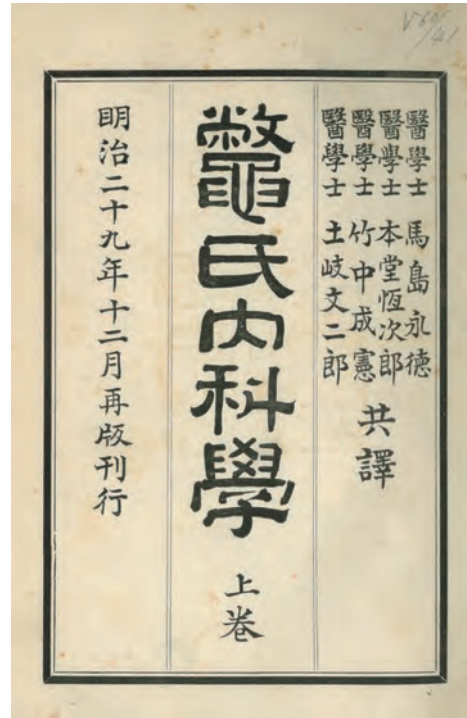 V60/41
醫學士 馬島永德
醫學士 本堂恆次郎
醫學士 竹中成憲
醫學士 土岐文二郎
共譯
鼈氏內科學
上卷
明治二十九年十二月再版刊行